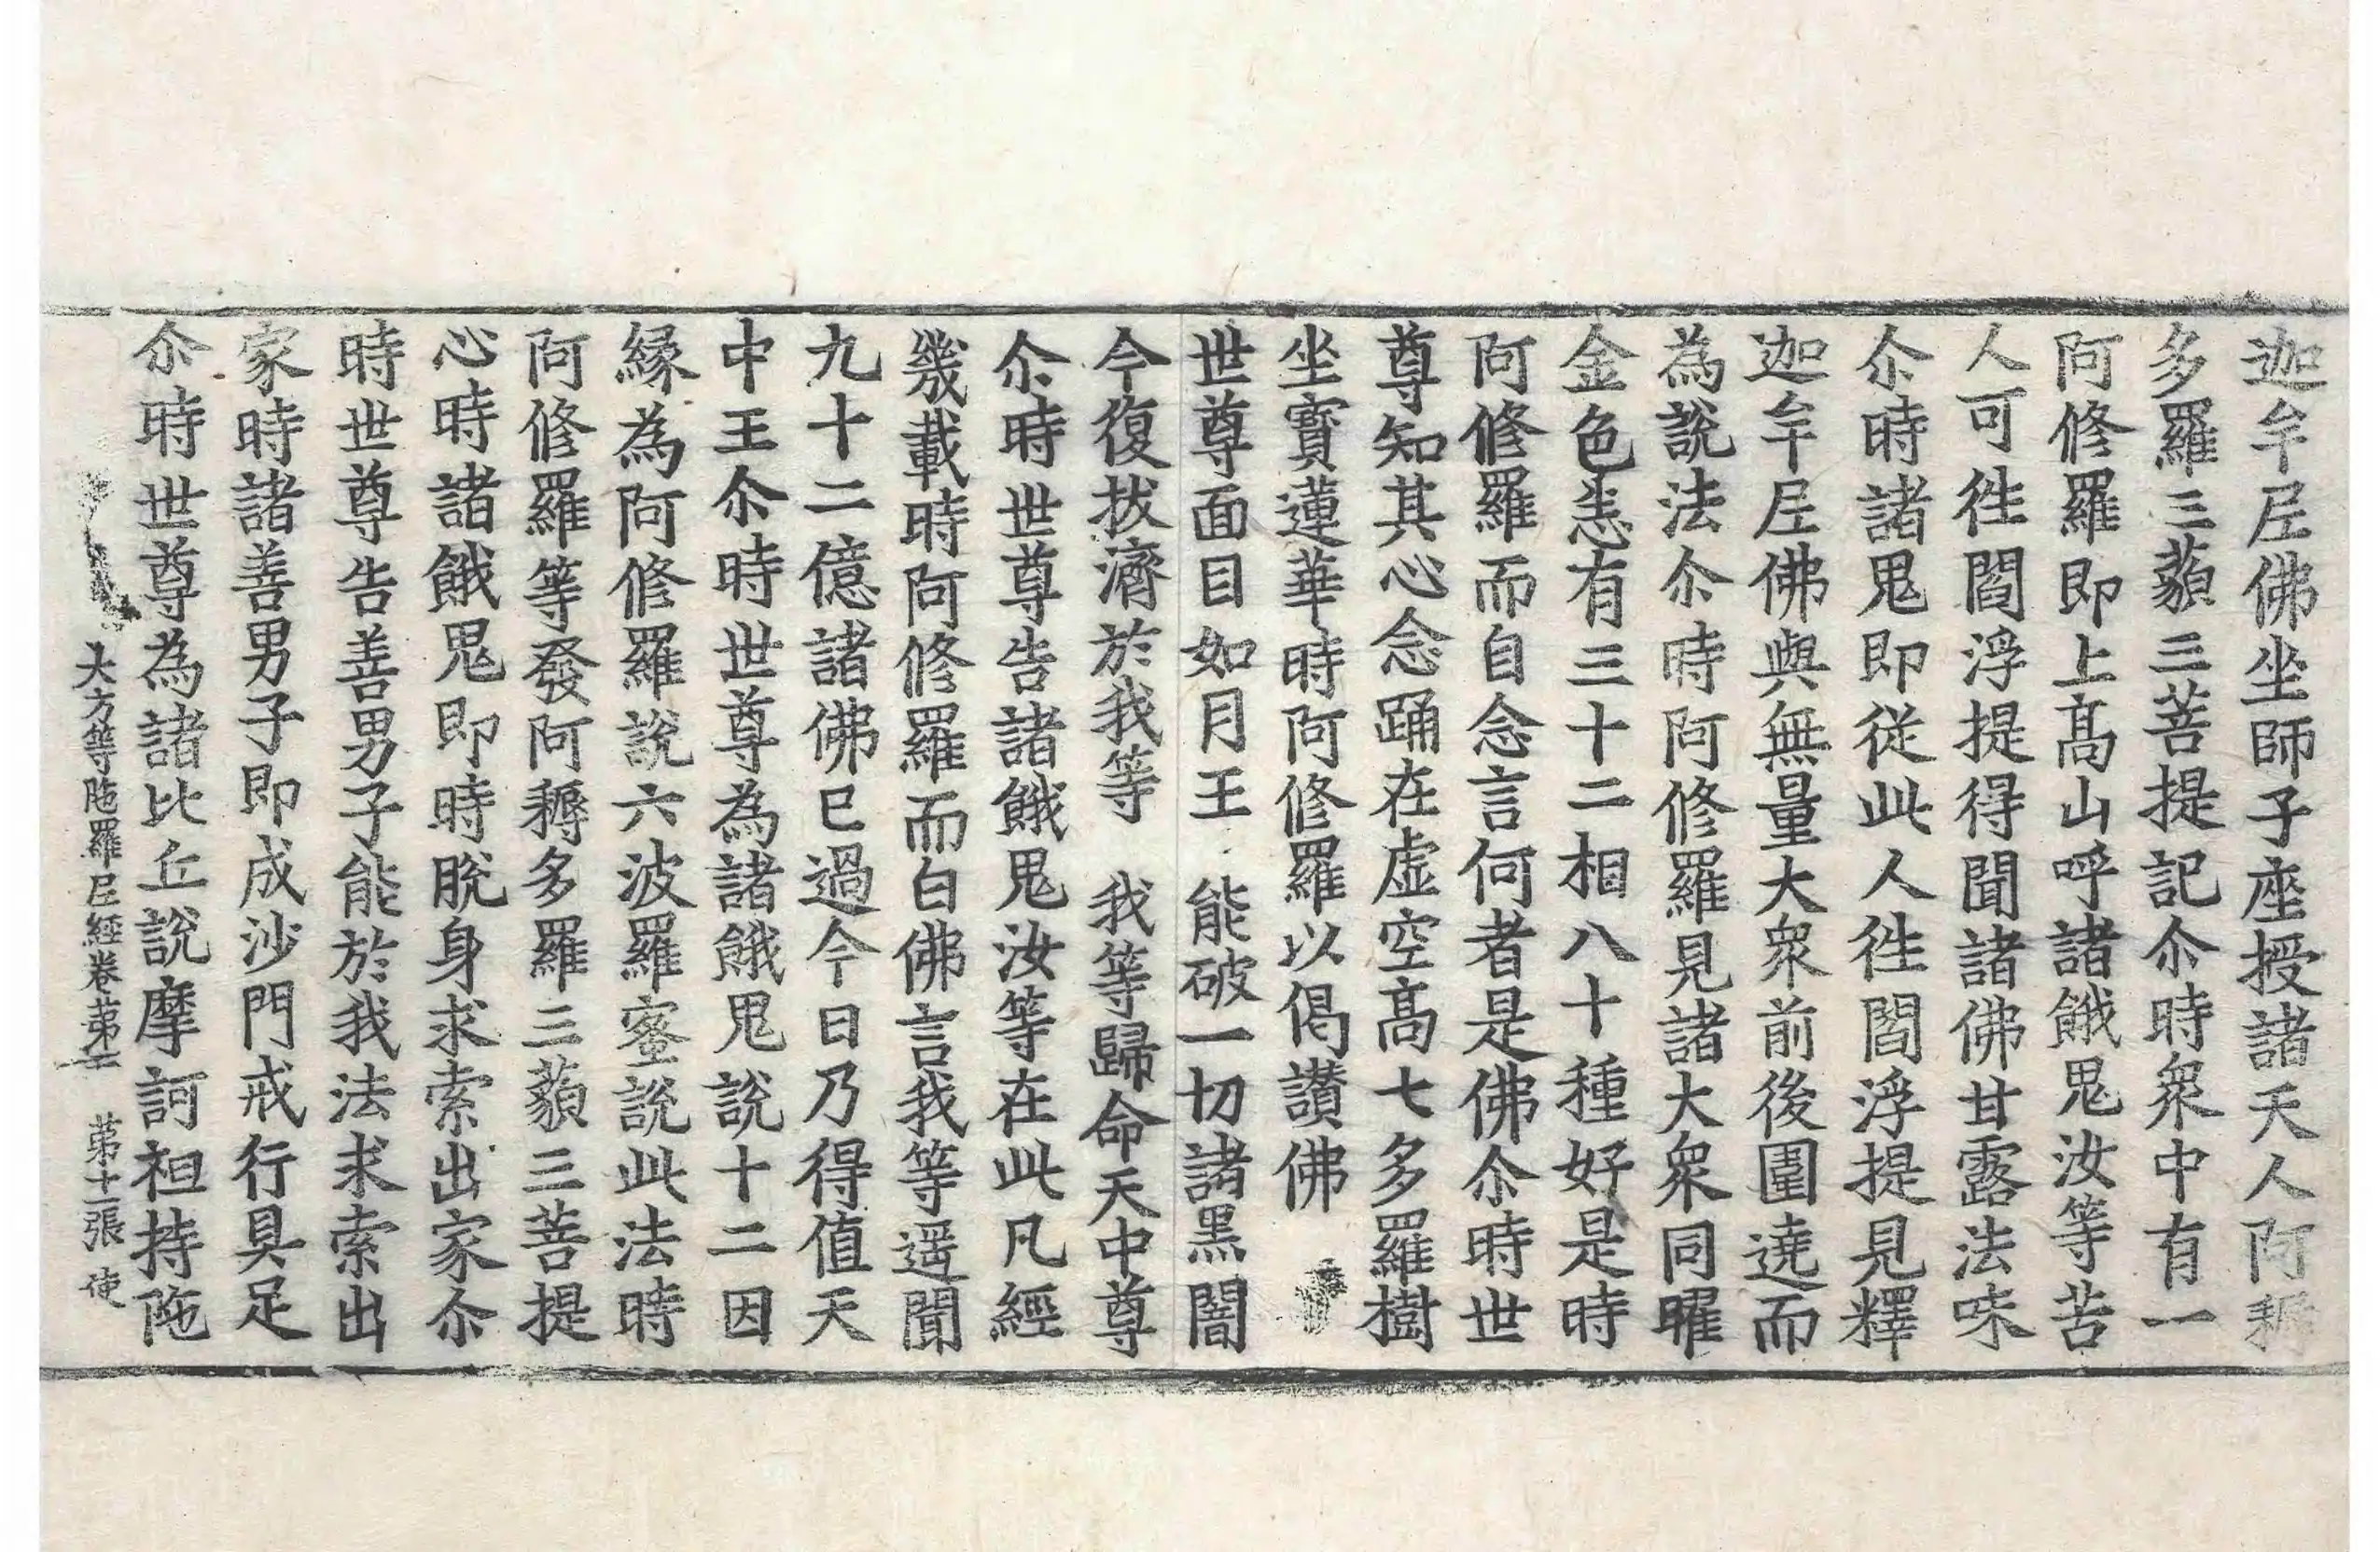 迦牟尼佛坐師子座授諸天人阿耨
多羅三藐三菩提記尒時衆中有一
阿修羅即上髙山呼諸餓鬼汝等苦
人可徃閻浮提得聞諸佛甘露法味
尒時諸鬼即從此人徃閻浮提見釋
迦牟尼佛與無量大衆前後圍遶而
為說法尒時阿修羅見諸大衆同曜
金色悉有三十二相八十種好是時
阿修羅而自念言何者是佛尒時世
尊知其心念踊在虛空髙七多羅樹
坐寳蓮華時阿修羅以偈讃佛
世尊面目如月王　能破一切諸黒闇
今復拔濟於我等　我等歸命天中尊
尒時世尊告諸餓鬼汝等在此凡經
幾載時阿修羅而白佛言我等遥聞
九十二億諸佛已過今日乃得值天
中王尒時世尊為諸餓鬼說十二因
緣為阿修羅說六波羅蜜說此法時
阿修羅等發阿耨多羅三藐三菩提
心時諸餓鬼即時脫身求索出家尒
時世尊告善男子能於我法求索出
家時諸善男子即成沙門戒行具足
尒時世尊為諸比丘說摩訶袒持陁
大方等陁羅尼經卷第　第十一張　使